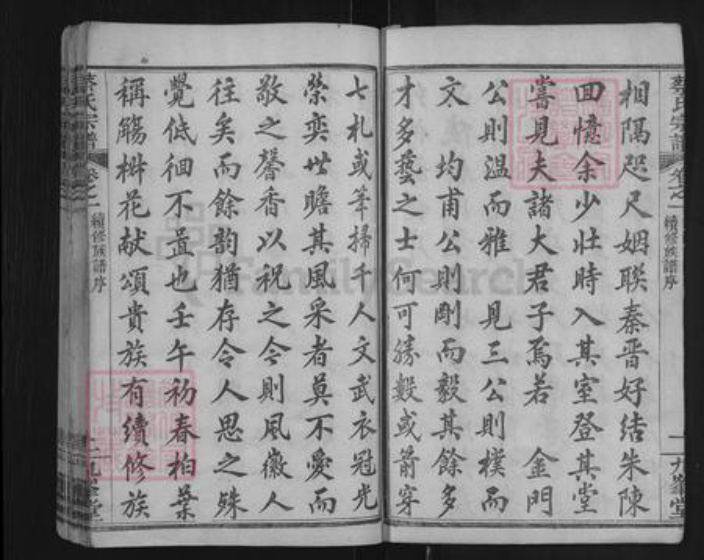 蔡氏宗譜 卷之一 續修族譜序 一 九峯堂
相隔咫尺姻聯秦晉好結朱陳
回憶余少壯時入其室登其堂
嘗見夫諸大君子焉若 金門
公則溫而雅 見三公則樸而
文 均甫公則剛而毅其餘多
才多藝之士何可勝數或箭穿
七札或筆掃千人文武衣冠光
榮奕世瞻其風采者莫不愛而
敬之馨香以祝之今則風徽人
往矣而餘韵猶存令人思之殊
覺低徊不置也壬午初春柏葉
稱觴椒花献頌貴族有續修族
蔡氏宗譜 卷之一 續修族譜序 二 九峯堂
FamilySearch